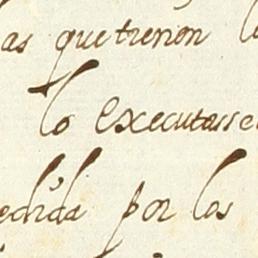 as que tienen l
lo executasse
edida por los